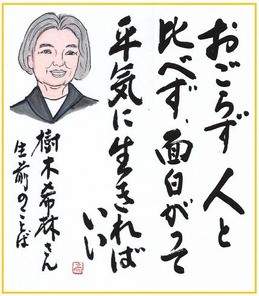 おごらず 人と
比べず、面白がって
平気に生きれば
いい
樹木希林さん
生前のことば